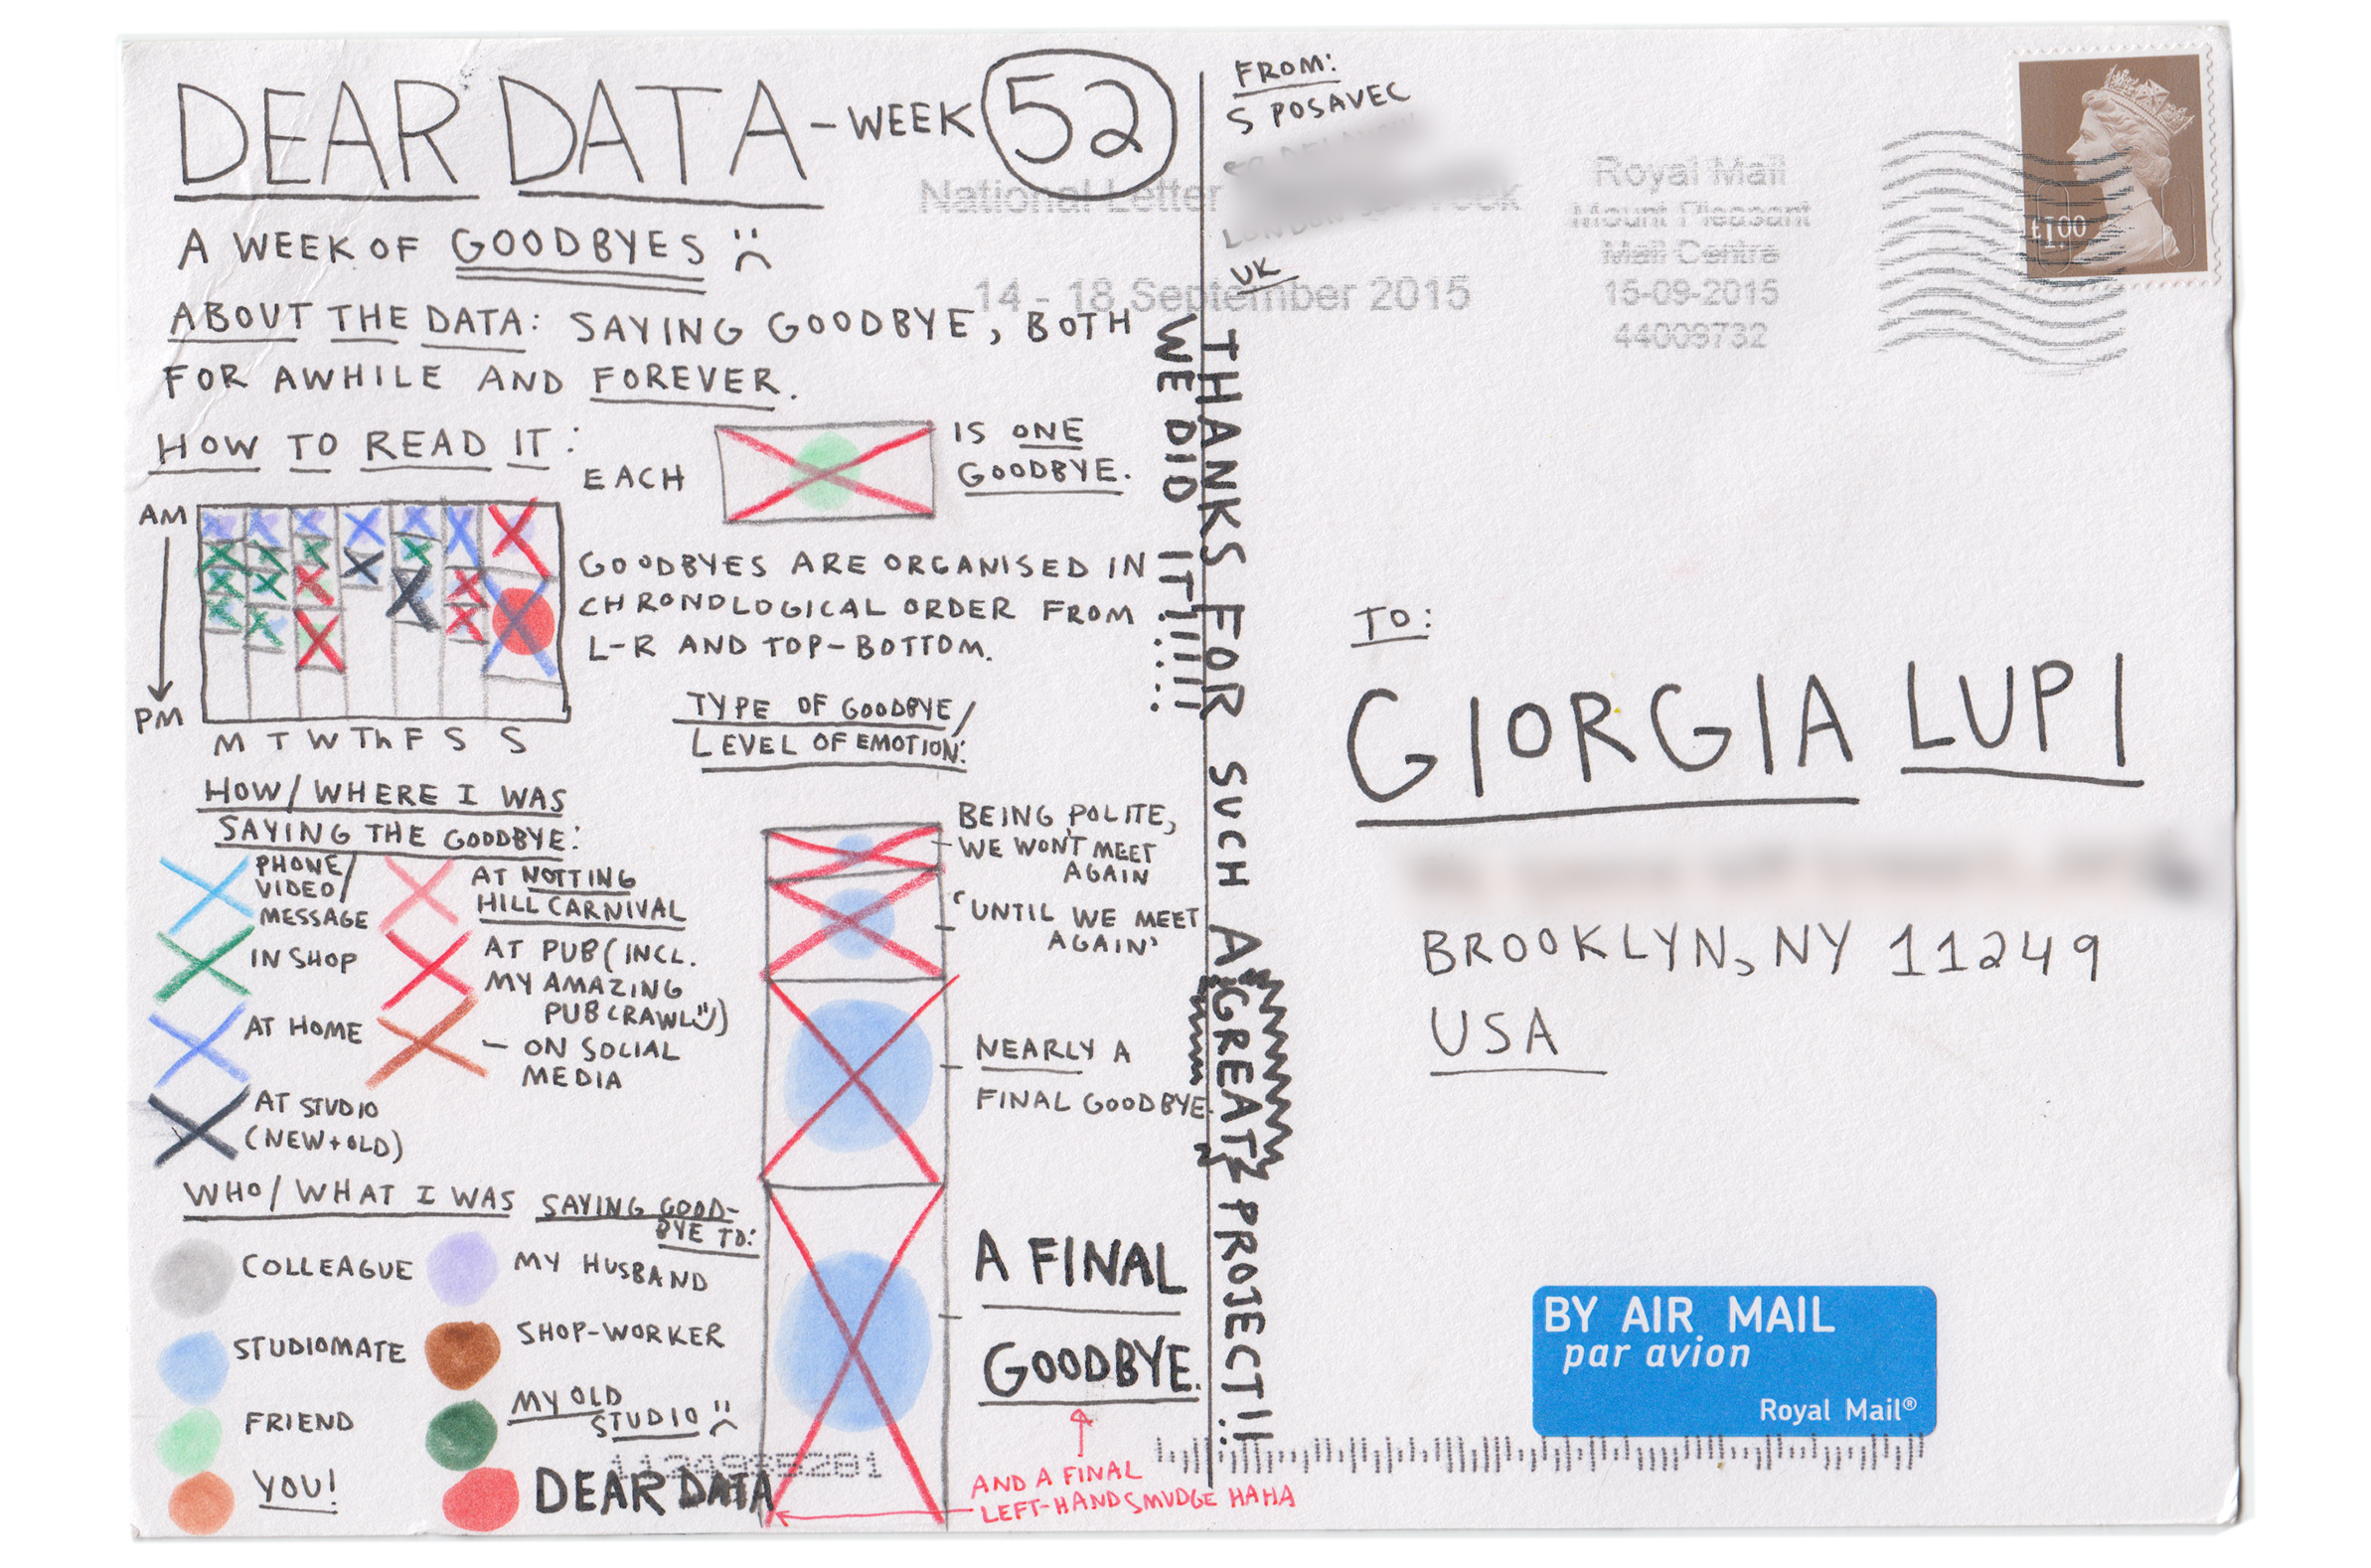 DEAR DATA - WEEK 52
A WEEK OF GOODBYES :(
ABOUT THE DATA: SAYING GOODBYE, BOTH
FOR AWHILE AND FOREVER.
HOW TO READ IT:
EACH
IS ONE
GOODBYE.
AM
PM
M T W Th F S S
GOODBYES ARE ORGANISED IN
CHRONOLOGICAL ORDER FROM
L-R AND TOP-BOTTOM.
TYPE OF GOODBYE/
LEVEL OF EMOTION:
BEING POLITE,
WE WON'T MEET
AGAIN
'UNTIL WE MEET
AGAIN'
NEARLY A
FINAL GOODBYE.
A FINAL
GOODBYE.
AND A FINAL
LEFT-HAND SMUDGE HAHA
HOW/WHERE I WAS
SAYING THE GOODBYE:
PHONE/
VIDEO/
MESSAGE
IN SHOP
AT HOME
AT STUDIO
(NEW+OLD)
AT NOTTING
HILL CARNIVAL
AT PUB (INCL.
MY AMAZING
PUB CRAWL :))
- ON SOCIAL
MEDIA
WHO/WHAT I WAS SAYING GOOD-
BYE TO:
COLLEAGUE
STUDIOMATE
FRIEND
YOU!
MY HUSBAND
SHOP-WORKER
MY OLD
STUDIO :(
DEAR DATA
THANKS FOR SUCH A GREAT PROJECT!!
WE DID IT!!!!!
FROM:
S POSAVEC
UK
National Letter
14 - 18 September 2015
Royal Mail
Mount Pleasant
Mail Centre
15-09-2015
44009732
£1.00
TO:
GIORGIA LUPI
BROOKLYN, NY 11249
USA
BY AIR MAIL
par avion
Royal Mail®